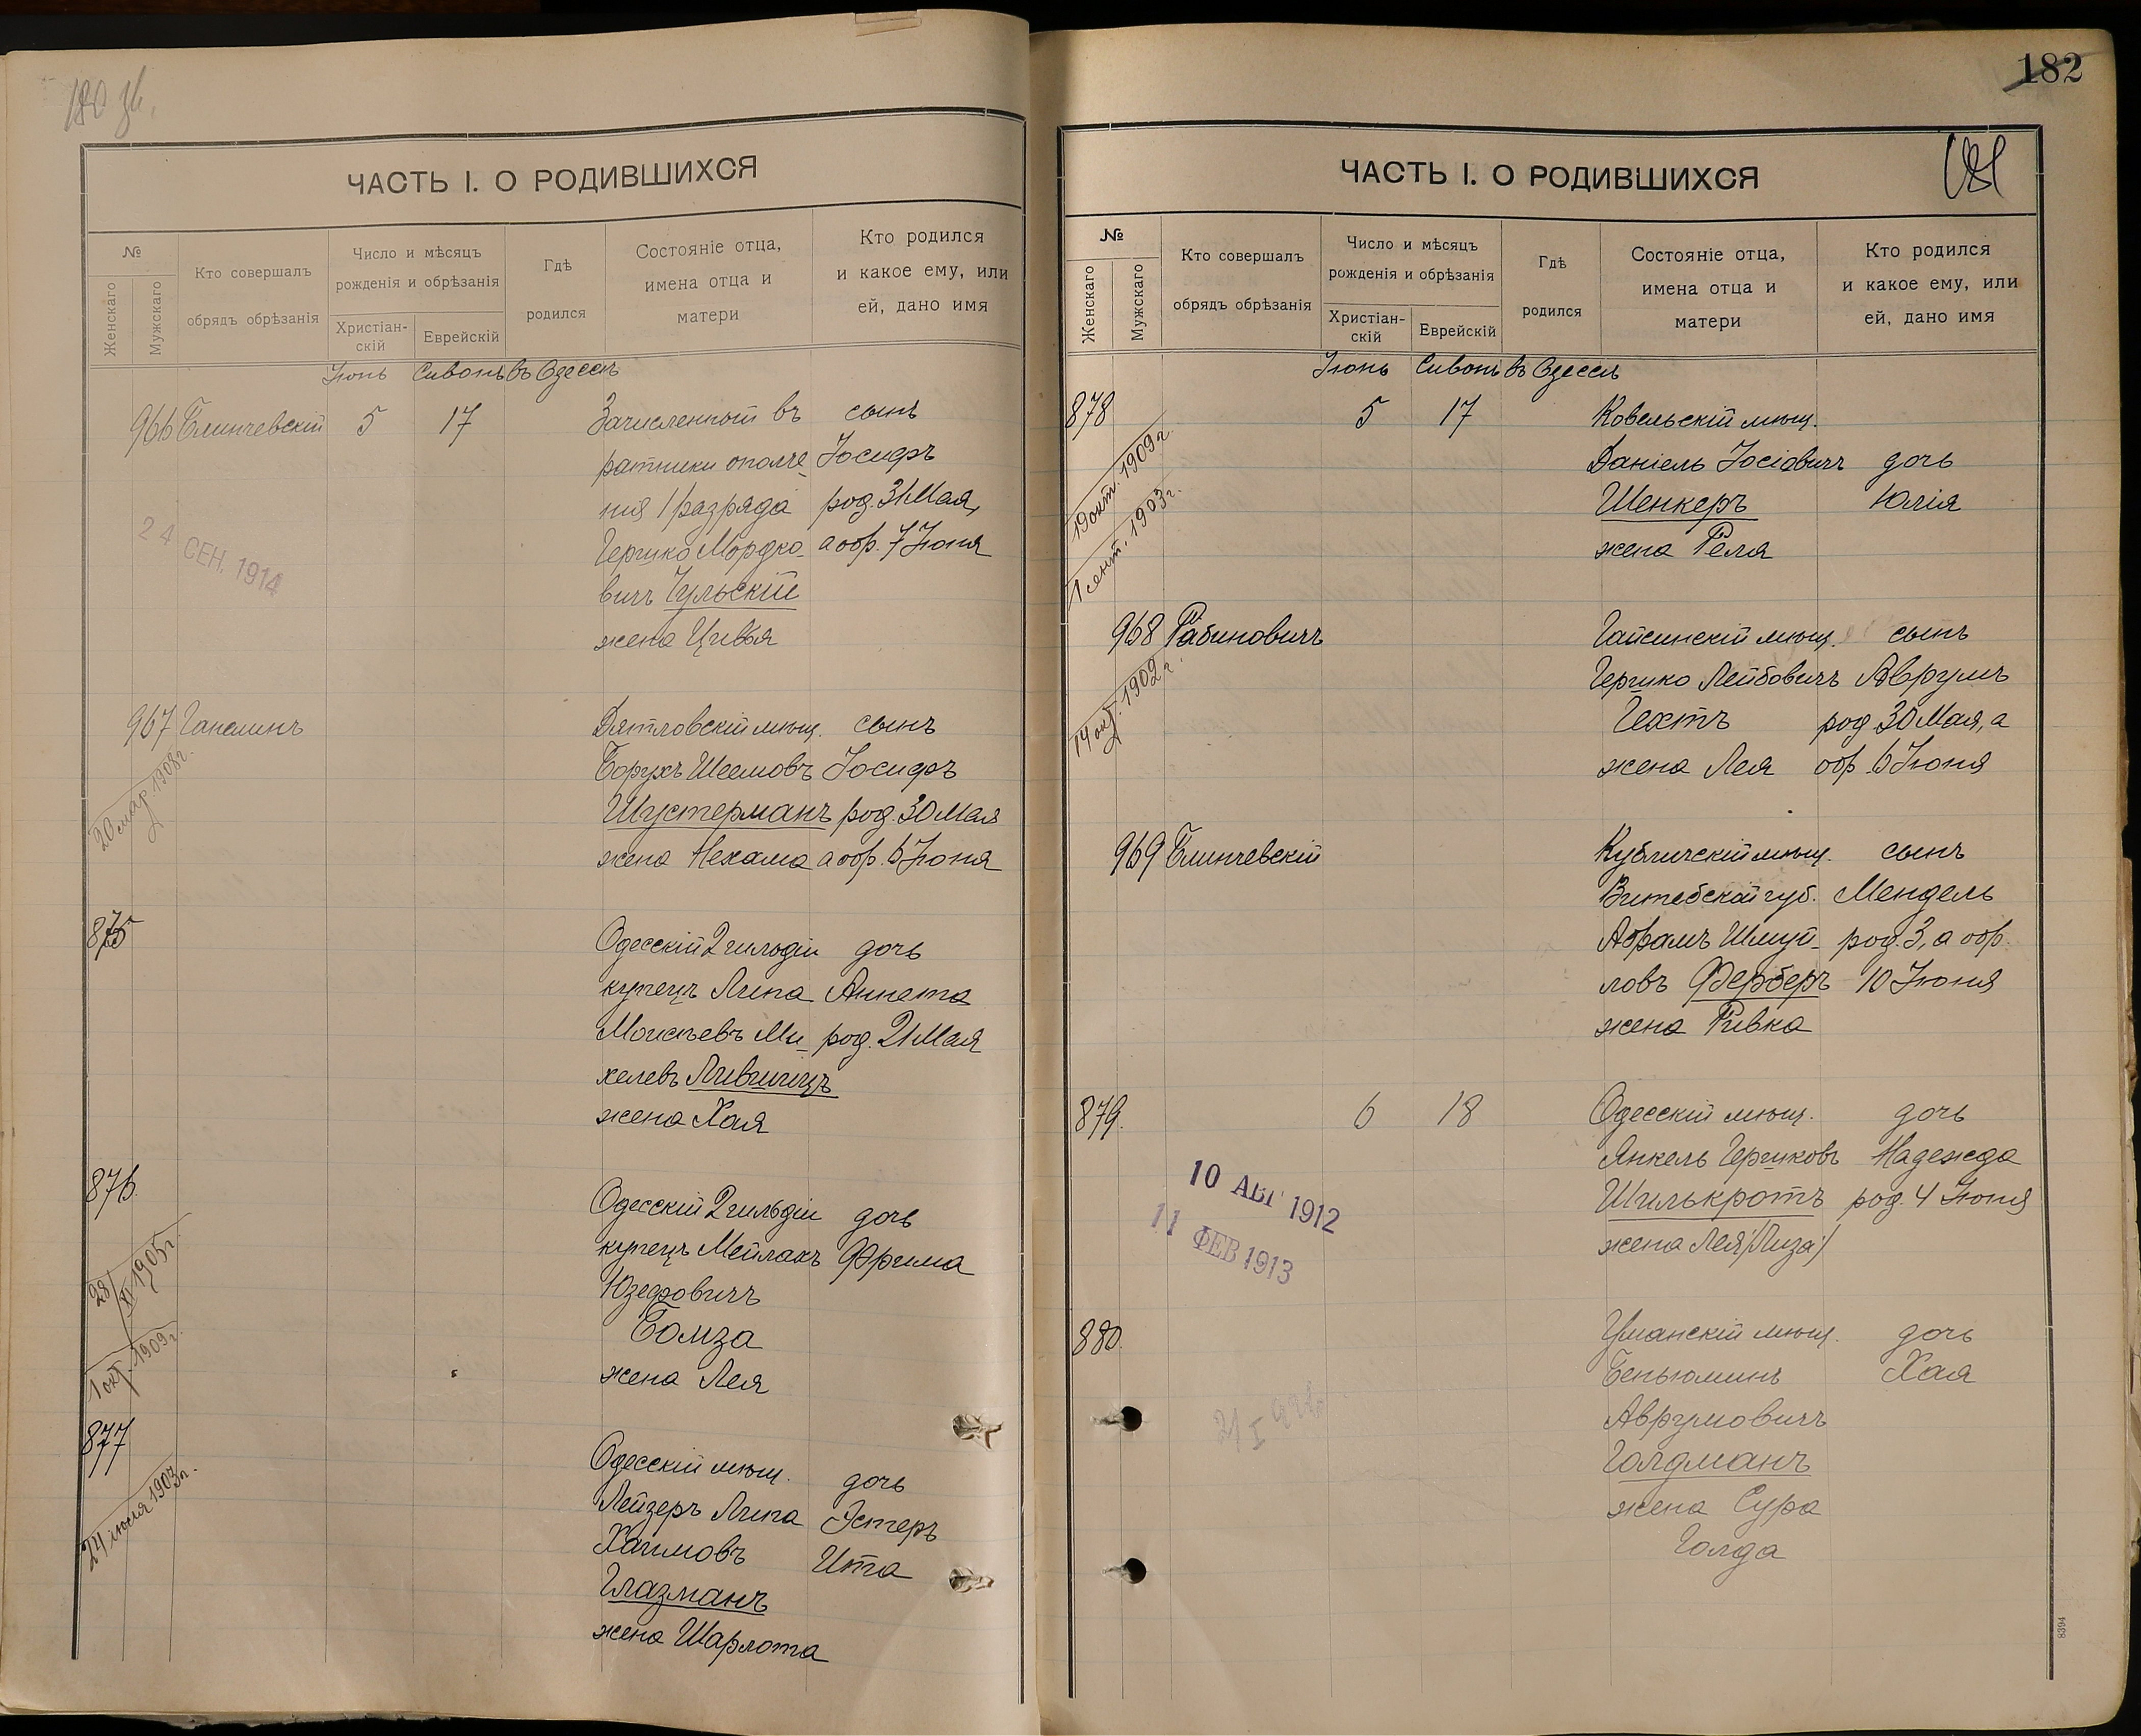 180 зв.
ЧАСТЬ I. О РОДИВШИХСЯ
№
Женскаго
Мужскаго
Кто совершалъ
обрядъ обрѣзанія
Число и мѣсяцъ
рожденія и обрѣзанія
Христіан-
скій
Еврейскій
Гдѣ
родился
Состояніе отца,
имена отца и
матери
Кто родился
и какое ему, или
ей, дано имя
Іюнь Сивонъ въ Одессѣ
966 Блинчевскій 5 17 Зачисленный въ сынъ
ратники ополче- Іосифъ
нія 1 разряда род. 31 Мая,
Гершко Мордко- а обр. 7 Іюня
вичъ Чульскій
жена Цивья
24 СЕН. 1914
967 Ганелинъ Дятловскій мѣщ. сынъ
Борухъ Шеемовъ Іосифъ
Шустерманъ род. 30 Мая
жена Нехама а обр. 6 Іюня
20 мар. 1908 г.
875 Одесскій 2 гильдіи дочь
купецъ Липа Аннета
Моисѣевъ Ми- род. 21 Мая
хелевъ Лившицъ
жена Хая
876. Одесскій 2 гильдіи дочь
купецъ Мейлахъ Фрима
Юзефовичъ
Бомза
жена Лея
28/XI 1905 г.
1 окт. 1909 г.
877 Одесскій мѣщ. дочь
Лейзеръ Липа Эстеръ
Хаимовъ Ита
Глазманъ
жена Шарлота
24 июля 1903 г.
182
181
ЧАСТЬ I. О РОДИВШИХСЯ
№
Женскаго
Мужскаго
Кто совершалъ
обрядъ обрѣзанія
Число и мѣсяцъ
рожденія и обрѣзанія
Христіан-
скій
Еврейскій
Гдѣ
родился
Состояніе отца,
имена отца и
матери
Кто родился
и какое ему, или
ей, дано имя
Іюнь Сивонъ въ Одессѣ
878 5 17 Ковельскій мѣщ.
Даніель Іосіовичъ дочь
Шенкеръ Юлія
жена Реля
19 окт. 1909 г.
1 сент. 1903 г.
968 Рабиновичъ Гайсинскій мѣщ. сынъ
Гершко Лейбовичъ Аврумъ
Гехтъ род. 30 Мая, а
жена Лея обр. 6 Іюня
14 окт. 1902 г.
969 Блинчевскій Кубличскій мѣщ. сынъ
Витебской губ. Мендель
Абрамъ Шмуй- род. 3, а обр.
ловъ Ферберъ 10 Іюня
жена Ривка
879. 6 18 Одесскій мѣщ. дочь
Янкель Гершковъ Надежда
Шилькротъ род. 4 Іюня
жена Лея /Лиза/
10 АВГ 1912
11 ФЕВ 1913
880. Уманскій мѣщ. дочь
Беньюминъ Хая
Аврумовичъ
Голдманъ
жена Сура
Голда
8394